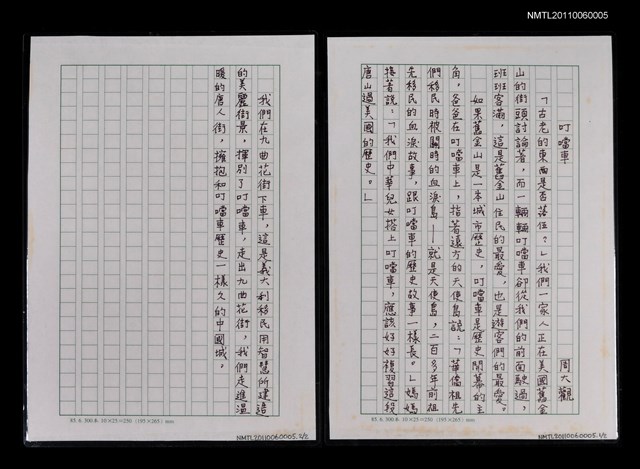 NMTL20110060005
叮噹車
周大觀
「古老的東西是否落伍?」我們一家人正在美國舊金
山的街頭討論著,而一輛輛叮噹車卻從我們的前面駛過,
班班客滿,這是舊金山住民的最愛,也是遊客們的最愛。
如果舊金山是一本城市歷史,叮噹車是歷史開幕的主
角,爸爸在叮噹車上,指著遠方的天使島說:「華僑祖先
們移民時被關時的血淚島—就是天使島,二百多年前祖
先移民的血淚故事,跟叮噹車的歷史故事一樣長。」媽媽
接著說:「我們中華兒女搭上叮噹車,應該好好複習這段
唐山過美國的歷史。」
85.6.300本 10×25=250 (195×265) mm
NMTL20110060005.1/2
我們在九曲花街下車,這是義大利移民用智慧所建造
的美麗街景,揮別了叮噹車,走出九曲花街,我們走進溫
暖的唐人街,擁抱和叮噹車歷史一樣久的中國城。
85.6.300本 10×25=250 (195×265) mm
NMTL20110060005.2/2